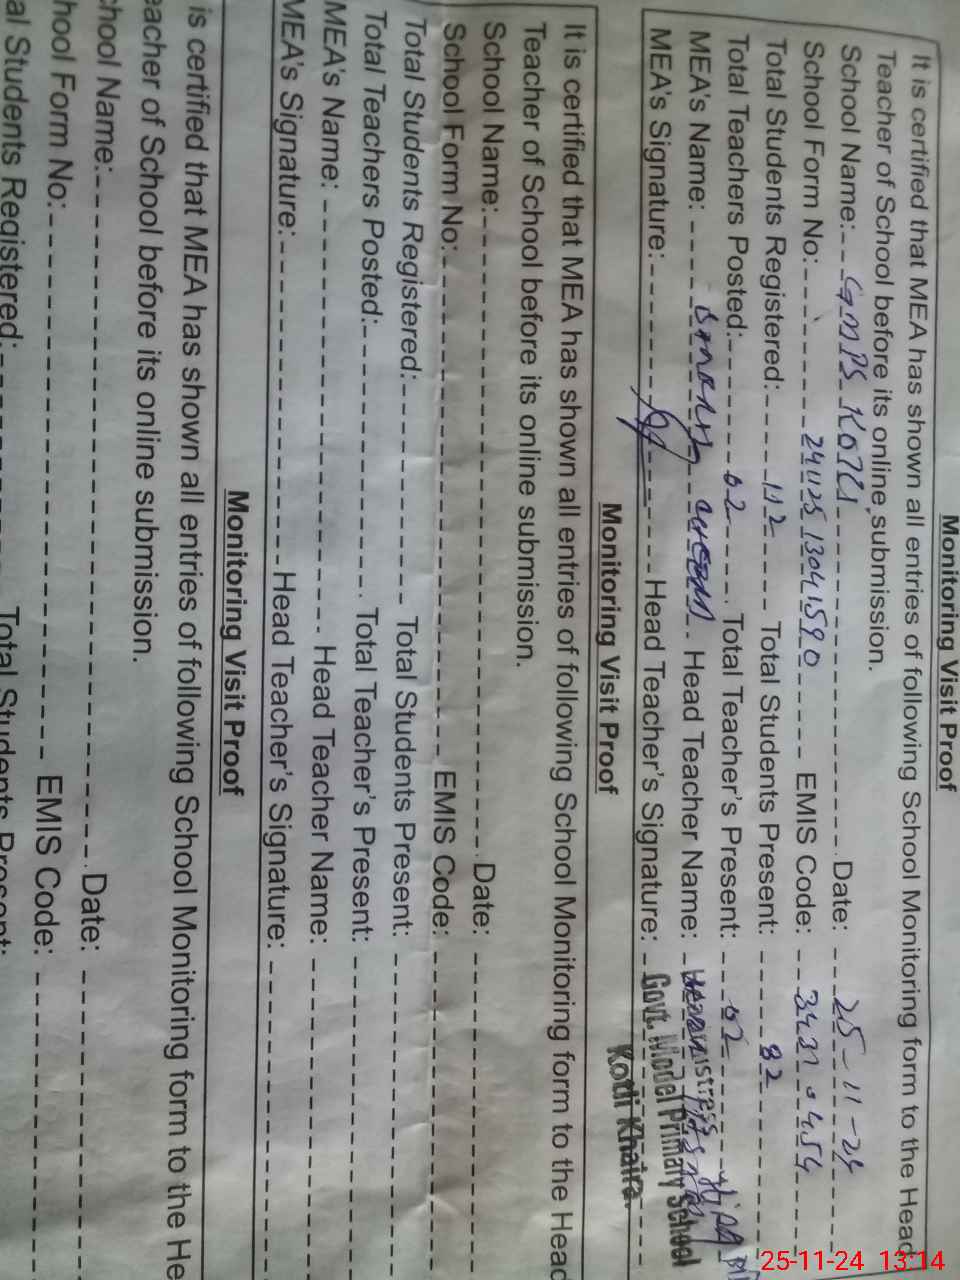 Monitoring Visit Proof
It is certified that MEA has shown all entries of following School Monitoring form to the Head
Teacher of School before its online submission.
School Name: GMPS Kotli Date: 25-11-24
School Form No: 24112513041590 EMIS Code: 34310454
Total Students Registered: 112 Total Students Present: 82
Total Teachers Posted: 02 Total Teacher's Present: 02
MEA's Name: Head Teacher Name: Headmistress
MEA's Signature: Head Teacher's Signature: Govt. Model Primary School
Kotli Khaira
Monitoring Visit Proof
It is certified that MEA has shown all entries of following School Monitoring form to the Head
Teacher of School before its online submission.
School Name: Date:
School Form No: EMIS Code:
Total Students Registered: Total Students Present:
Total Teachers Posted: Total Teacher's Present:
MEA's Name: Head Teacher Name:
MEA's Signature: Head Teacher's Signature:
Monitoring Visit Proof
is certified that MEA has shown all entries of following School Monitoring form to the He
eacher of School before its online submission.
chool Name: Date:
hool Form No: EMIS Code:
al Students Registered: Total Students Present:
25-11-24 13:14